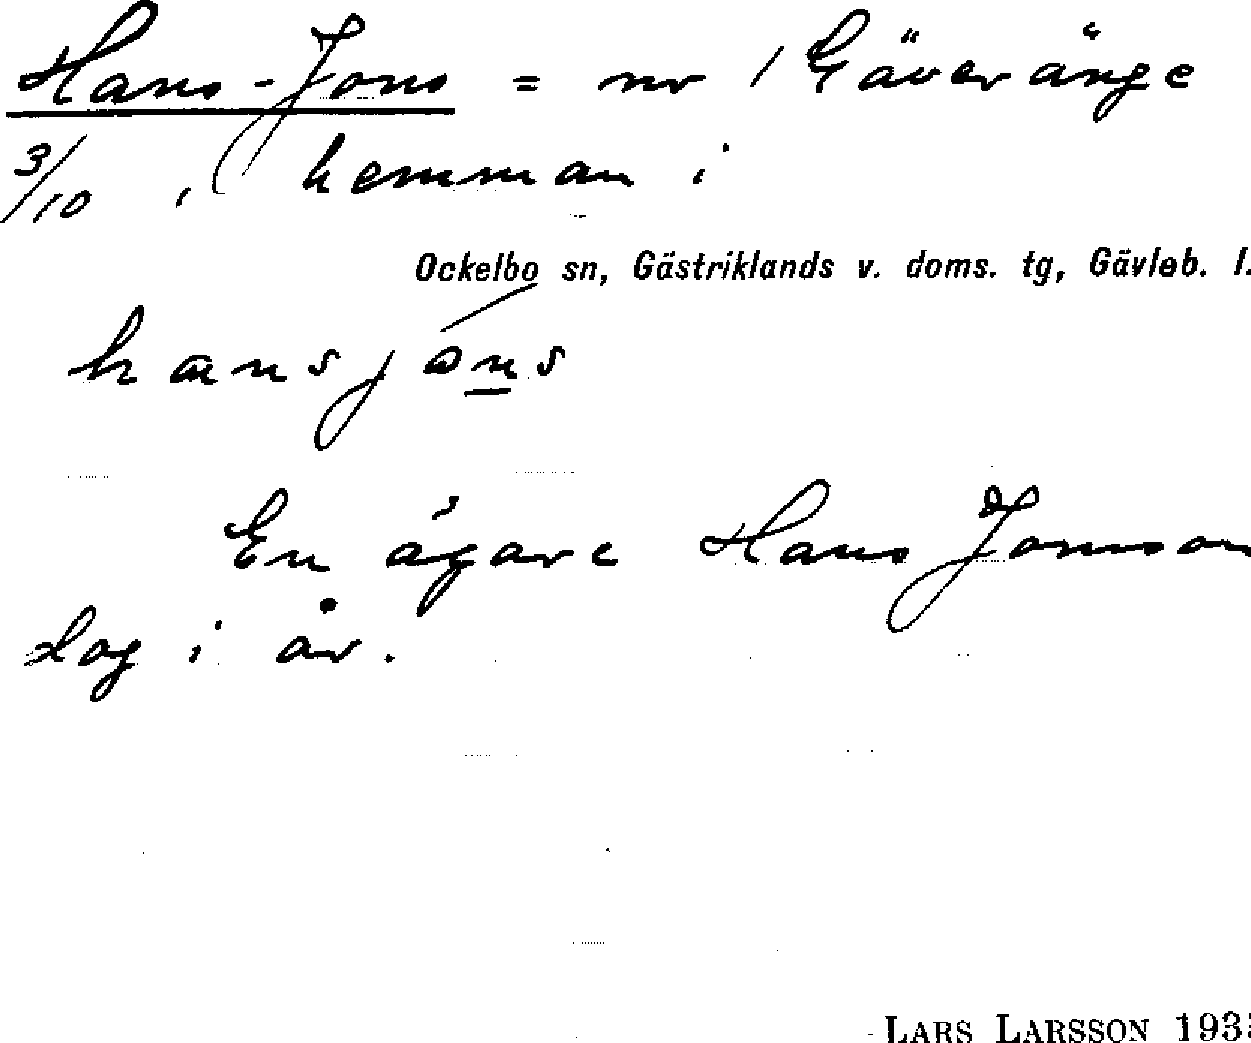 Hans-Jons = nr 1 Gäveränge
3/10, hemman i
Ockelbo sn, Gästriklands v. doms. tg, Gävleb. l.
hansjo̊ns
En ägare Hans Jonsson
dog i år.
LARS LARSSON 193